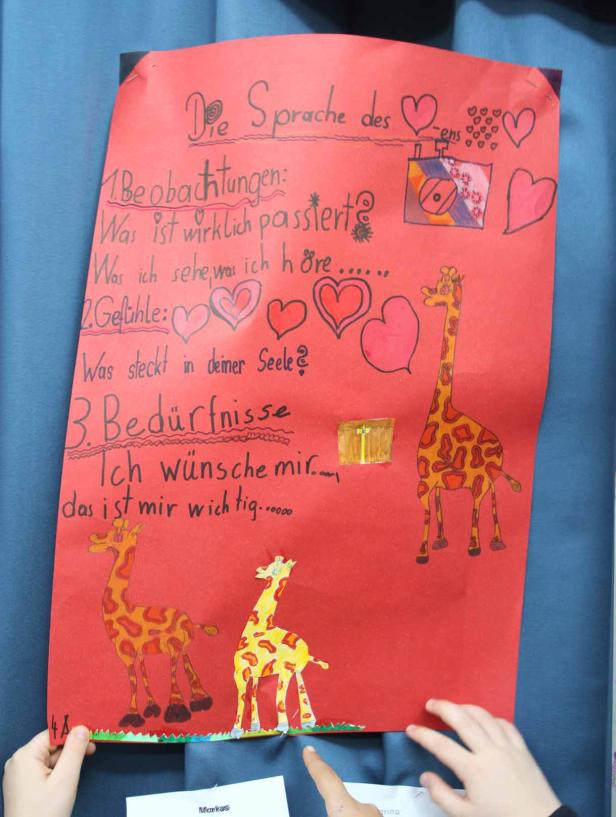 Die Sprache des -ens
1. Beobachtungen:
Was ist wirklich passiert?
Was ich sehe, was ich höre......
2. Gefühle:
Was steckt in deiner Seele?
3. Bedürfnisse
Ich wünsche mir....,
das ist mir wichtig......
4A
Markus